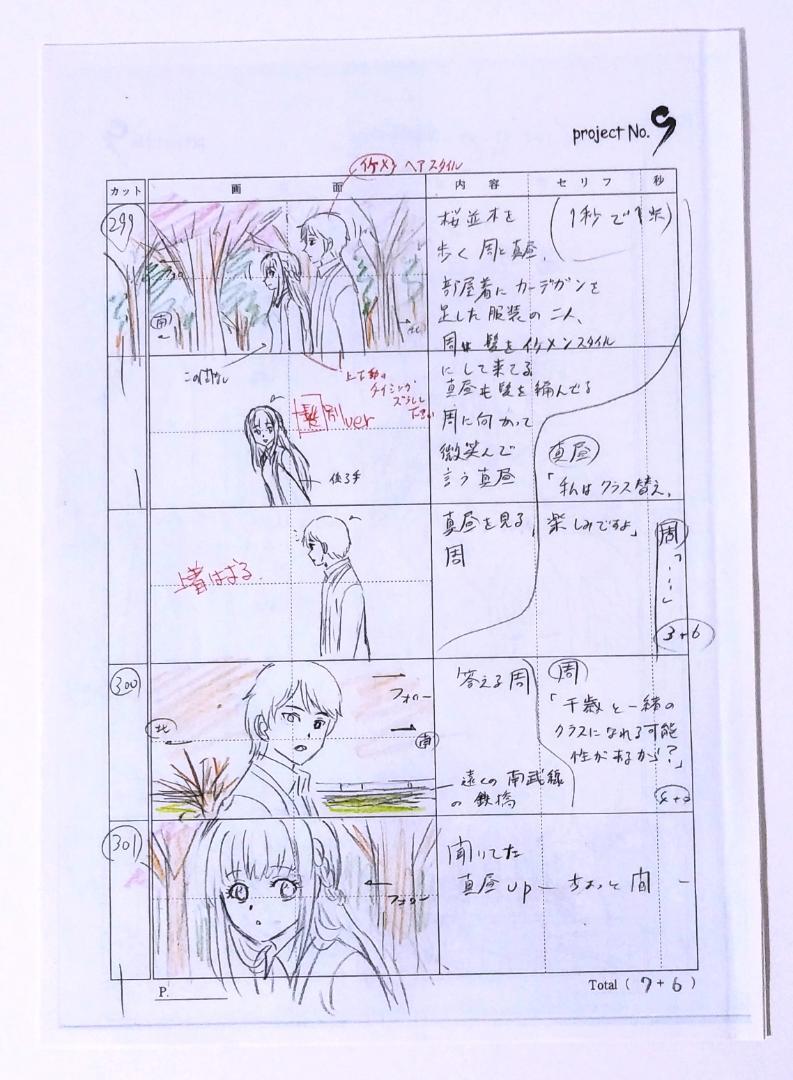 project No.9
イケメン ヘアスタイル
カット 画 面 内 容 セリフ 秒
299
桜並木を
歩く 周と真昼、
部屋着に カーデガンを
足した服装の二人、
周は 髪をイケメンスタイル
にして来てる
真昼も髪を編んでる
(1秒で1歩)
南
上下動の
タイミング
ズラして
下さい
髪 別ver
後ろ手
周に向かって
微笑んで
言う 真昼
真昼
「私は クラス替え、
楽しみですよ」
真昼を見る
周
周
「……」
3+6
300
フォロー
北
南
答える周
周
「千歳と一緒の
クラスになれる可能
性があるから?」
遠くの 南武線
の 鉄橋
4+0
301
フォロー
聞いてた
真昼up ー ちょっと 間 ー
P.
Total ( 7+6 )